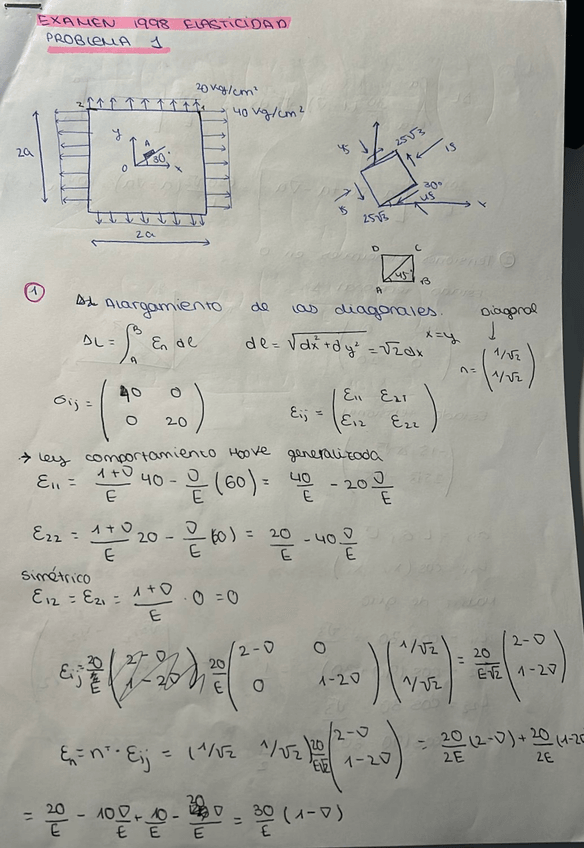 EXAMEN 1998 ELASTICIDAD
PROBLEMA 1
20 Kg/cm²
40 Kg/cm²
2 1
2a
y
A
30°
O x
2a
45 25√3 15
30°
45
15 25√3 x
D C
45°
A B
1
ΔL Alargamiento de las diagonales. Diagonal
ΔL = ∫_A^B εn dl dl = √(dx² + dy²) = √2 dx x=y n = (1/√2 ; 1/√2)
σij = (40 0 ; 0 20) εij = (ε11 ε21 ; ε12 ε22)
→ Ley comportamiento Hooke generalizada
ε11 = (1+ν)/E 40 − ν/E (60) = 40/E − 20 ν/E
ε22 = (1+ν)/E 20 − ν/E (60) = 20/E − 40 ν/E
simétrico
ε12 = ε21 = (1+ν)/E · 0 = 0
εij = 20/E (2−ν 0 ; 0 1−2ν) (1/√2 ; 1/√2) = 20/(E√2) (2−ν ; 1−2ν)
εn = nᵀ · εij = (1/√2 1/√2) 20/(E√2) (2−ν ; 1−2ν) = 20/2E (2−ν) + 20/2E (1−2ν
= 20/E − 10ν/E + 10/E − 20/E ν = 30/E (1−ν)